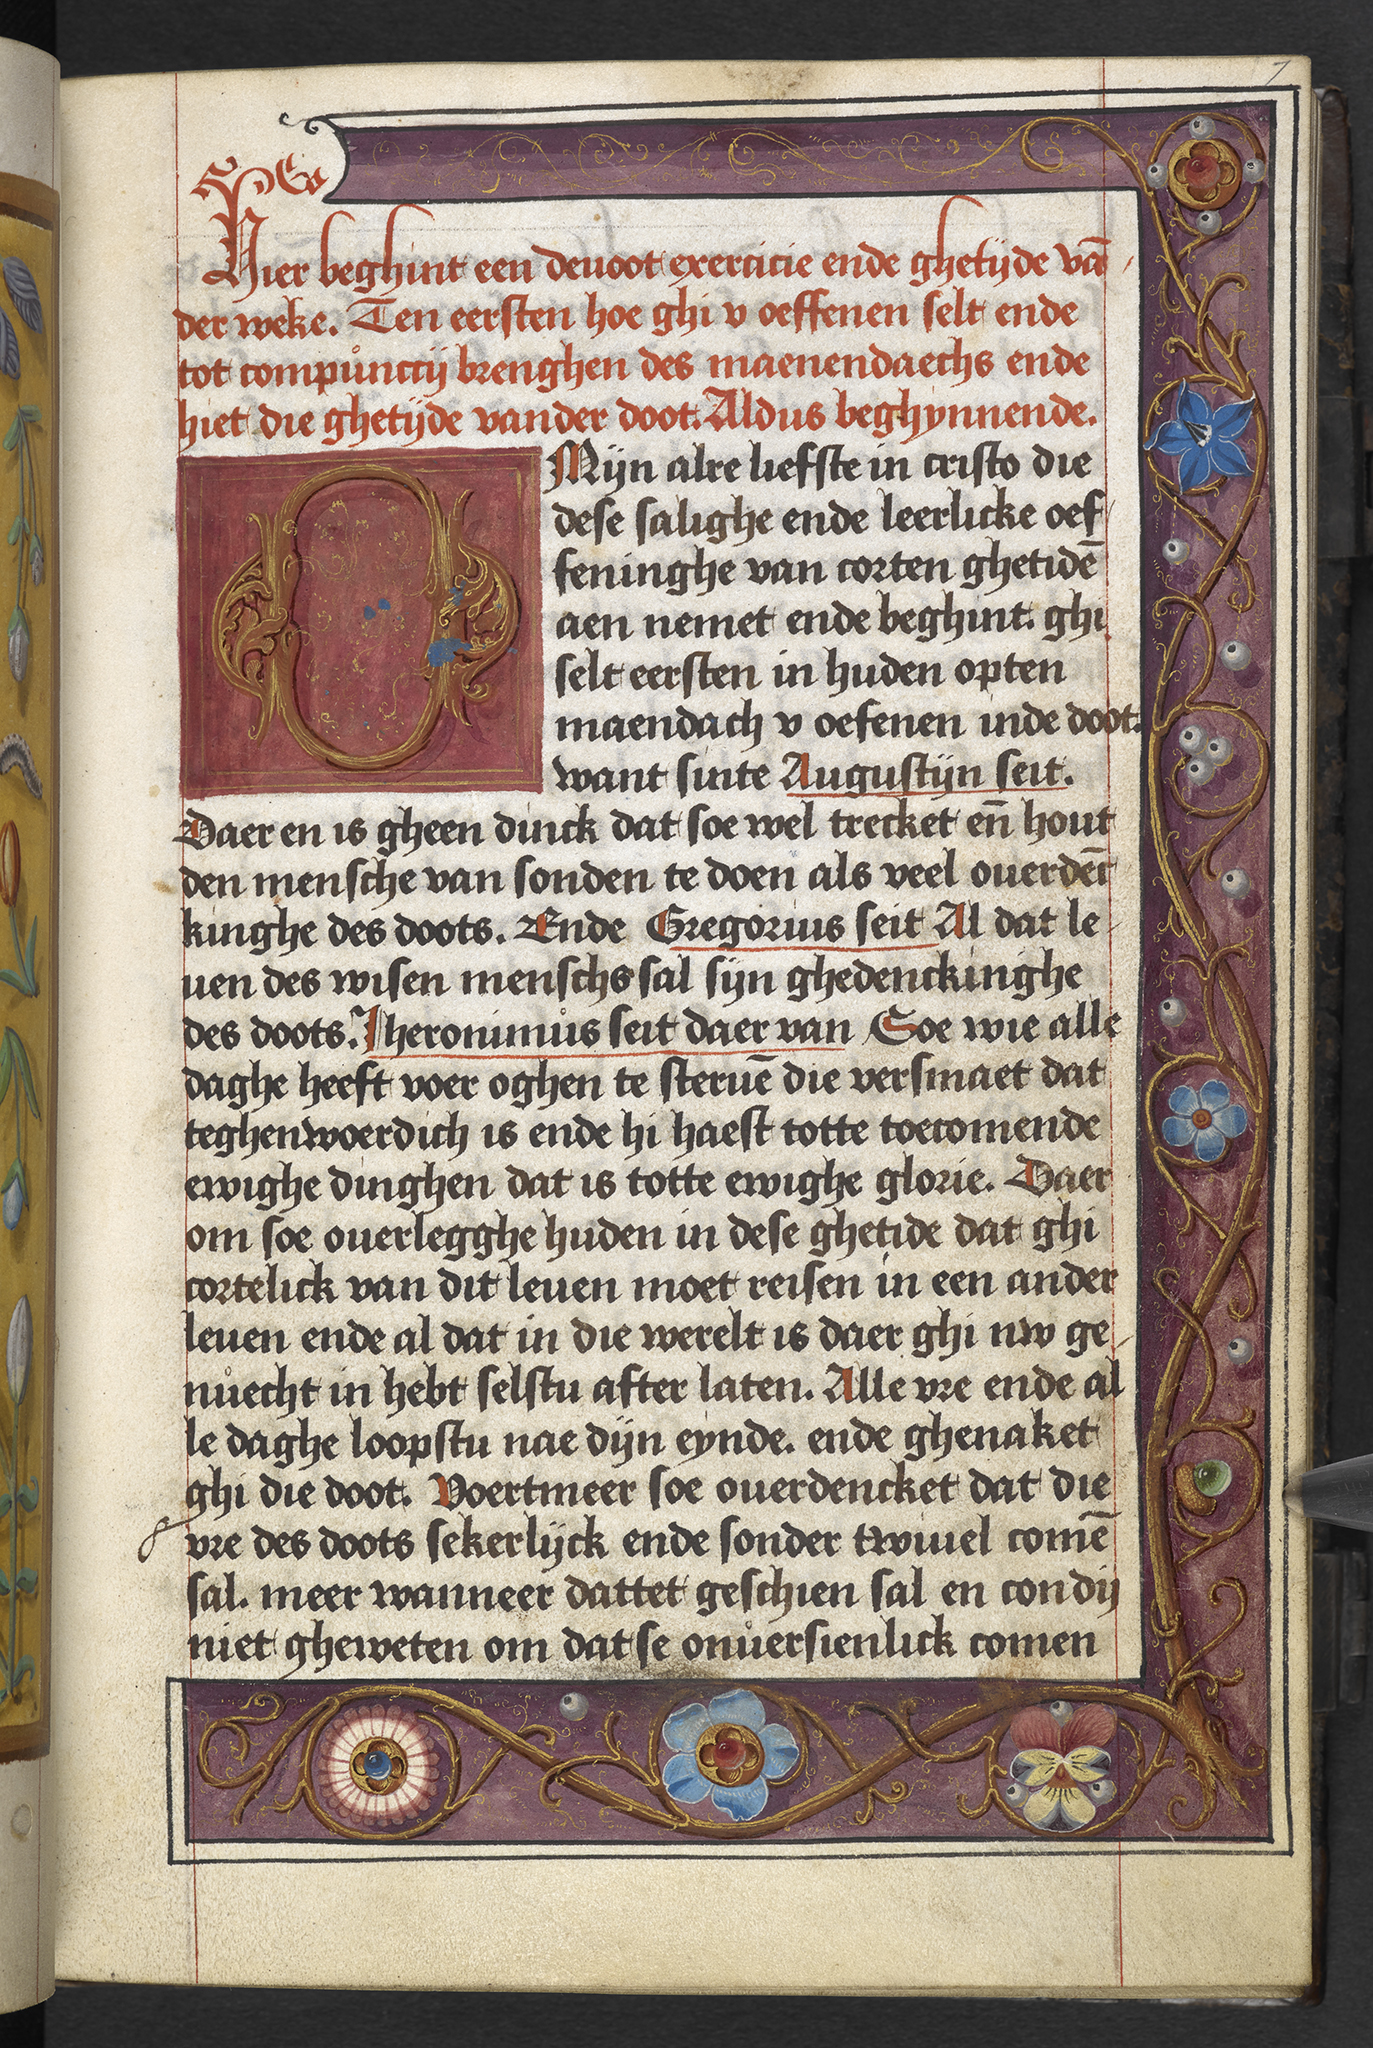 7
Hier beghint een deuoot exercicie ende ghetijde vā
der weke. Ten eersten hoe ghi v oeffenen selt ende
tot compůnctij brenghen des maenendaechs ende
hiet die ghetijde vander doot. Aldus beghynnende.
O Mijn alre liefste in cristo die
dese salighe ende leerlicke oef
feninghe van corten ghetidē
aen nemet ende beghint. ghi
selt eersten in huden opten
maendach v oefenen inde doot.
want sinte Augustijn seit.
Daer en is gheen dinck dat soe wel trecket en̄ hout
den mensche van sonden te doen als veel ouerdēc
kinghe des doots. Ende Gregorius seit Al dat le
uen des wisen menschs sal sijn ghedenckinghe
des doots. Jheronimůs seit daer van Soe wie alle
daghe heeft voer oghen te steruē die versmaet dat
teghenwoerdich is ende hi haest totte toecomende
ewighe dinghen dat is totte ewighe glorie. Daer
om soe ouerlegghe huden in dese ghetide dat ghi
cortelick van dit leuen moet reisen in een ander
leuen ende al dat in die werelt is daer ghi nw ge
nůecht in hebt selstu after laten. Alle vre ende al
le daghe loopstu nae dijn eynde. ende ghenaket
ghi die doot. Voertmeer soe ouerdencket dat die
vre des doots sekerlijck ende sonder twiuel comē
sal. meer wanneer dattet geschien sal en condij
niet gheweten om dat se onůersienlick comen